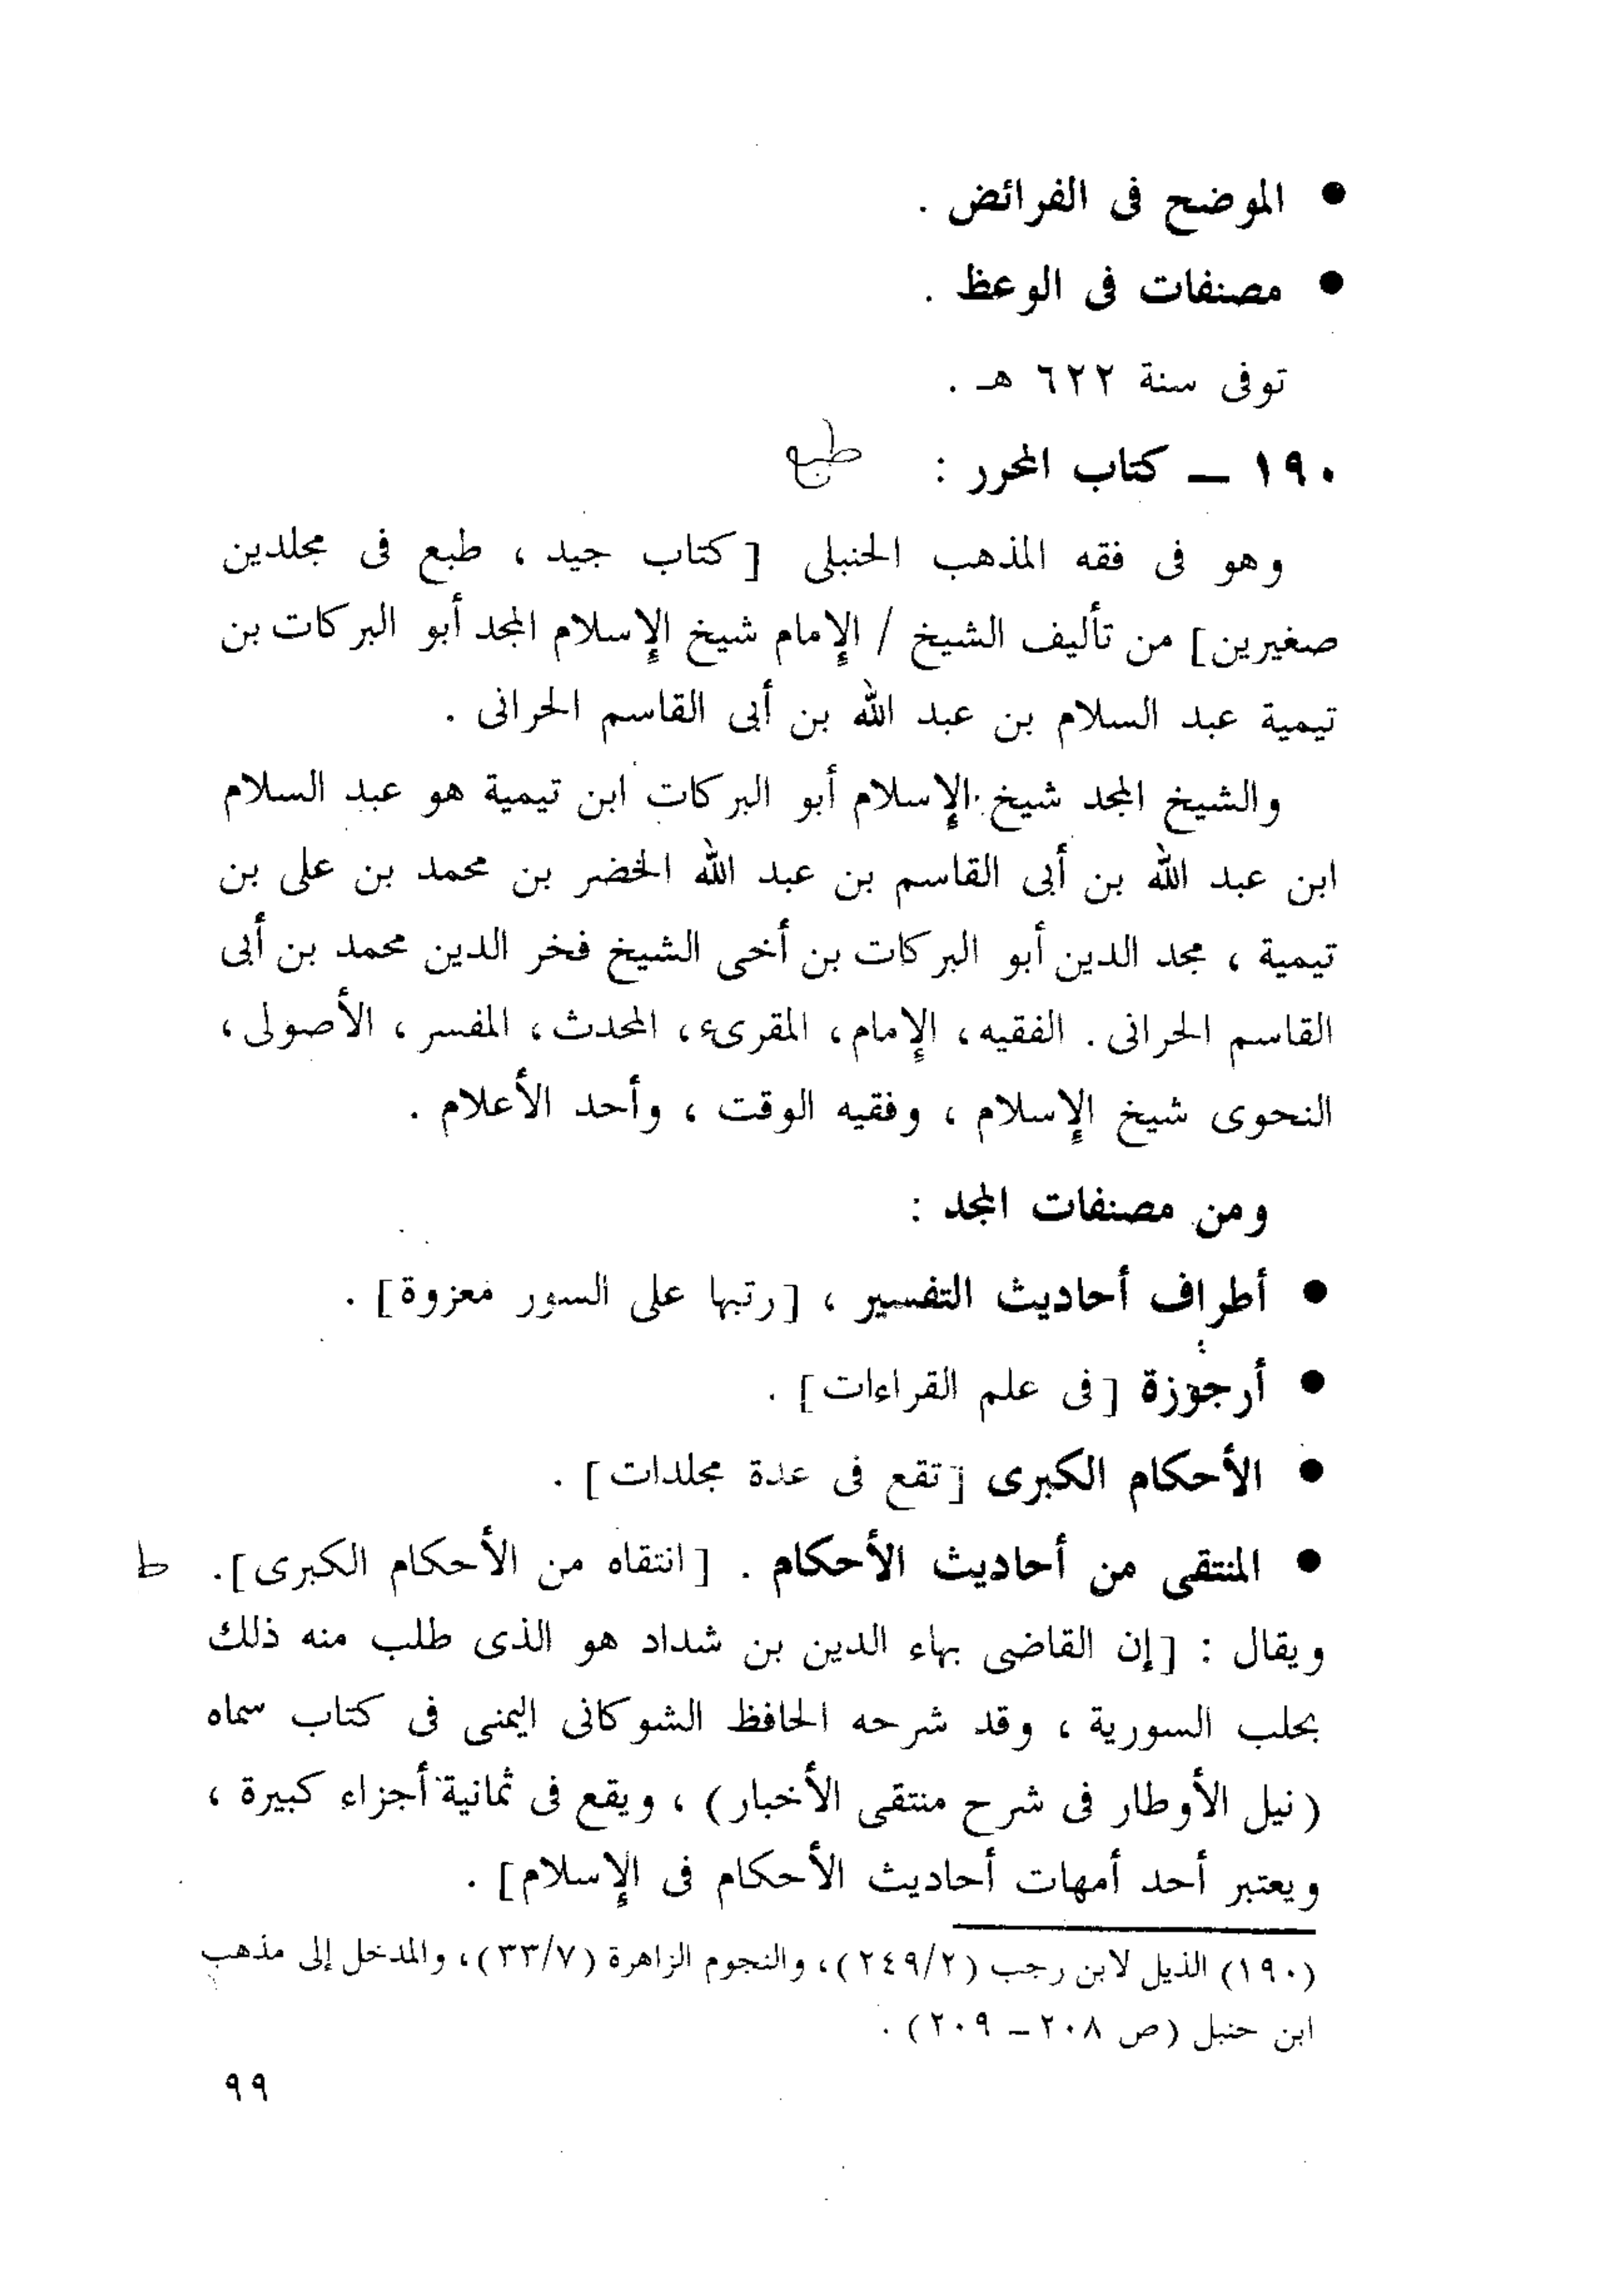 ● الموضح فى الفرائض .
● مصنفات فى الوعظ .
توفى سنة ٦٢٢ هـ .
١٩٠ — كتاب المحرر : طبع
وهو فى فقه المذهب الحنبلى [كتاب جيد ، طبع فى مجلدين
صغيرين] من تأليف الشيخ / الإمام شيخ الإسلام المجد أبو البركات بن
تيمية عبد السلام بن عبد الله بن أبى القاسم الحرانى .
والشيخ المجد شيخ الإسلام أبو البركات ابن تيمية هو عبد السلام
ابن عبد الله بن أبى القاسم بن عبد الله الخضر بن محمد بن على بن
تيمية ، مجد الدين أبو البركات بن أخى الشيخ فخر الدين محمد بن أبى
القاسم الحرانى . الفقيه ، الإمام ، المقرىء ، المحدث ، المفسر ، الأصولى ،
النحوى شيخ الإسلام ، وفقيه الوقت ، وأحد الأعلام .
ومن مصنفات المجد :
● أطراف أحاديث التفسير ، [رتبها على السور معزوة] .
● أرجوزة [فى علم القراءات] .
● الأحكام الكبرى [تقع فى عدة مجلدات] .
● المنتقى من أحاديث الأحكام . [انتقاه من الأحكام الكبرى] . ط
ويقال : [إن القاضى بهاء الدين بن شداد هو الذى طلب منه ذلك
بحلب السورية ، وقد شرحه الحافظ الشوكانى اليمنى فى كتاب سماه
(نيل الأوطار فى شرح منتقى الأخبار) ، ويقع فى ثمانية أجزاء كبيرة ،
ويعتبر أحد أمهات أحاديث الأحكام فى الإسلام] .
(١٩٠) الذيل لابن رجب (٢٤٩/٢) ، والنجوم الزاهرة (٣٣/٧) ، والمدخل إلى مذهب
ابن حنبل (ص ٢٠٨ – ٢٠٩) .
٩٩